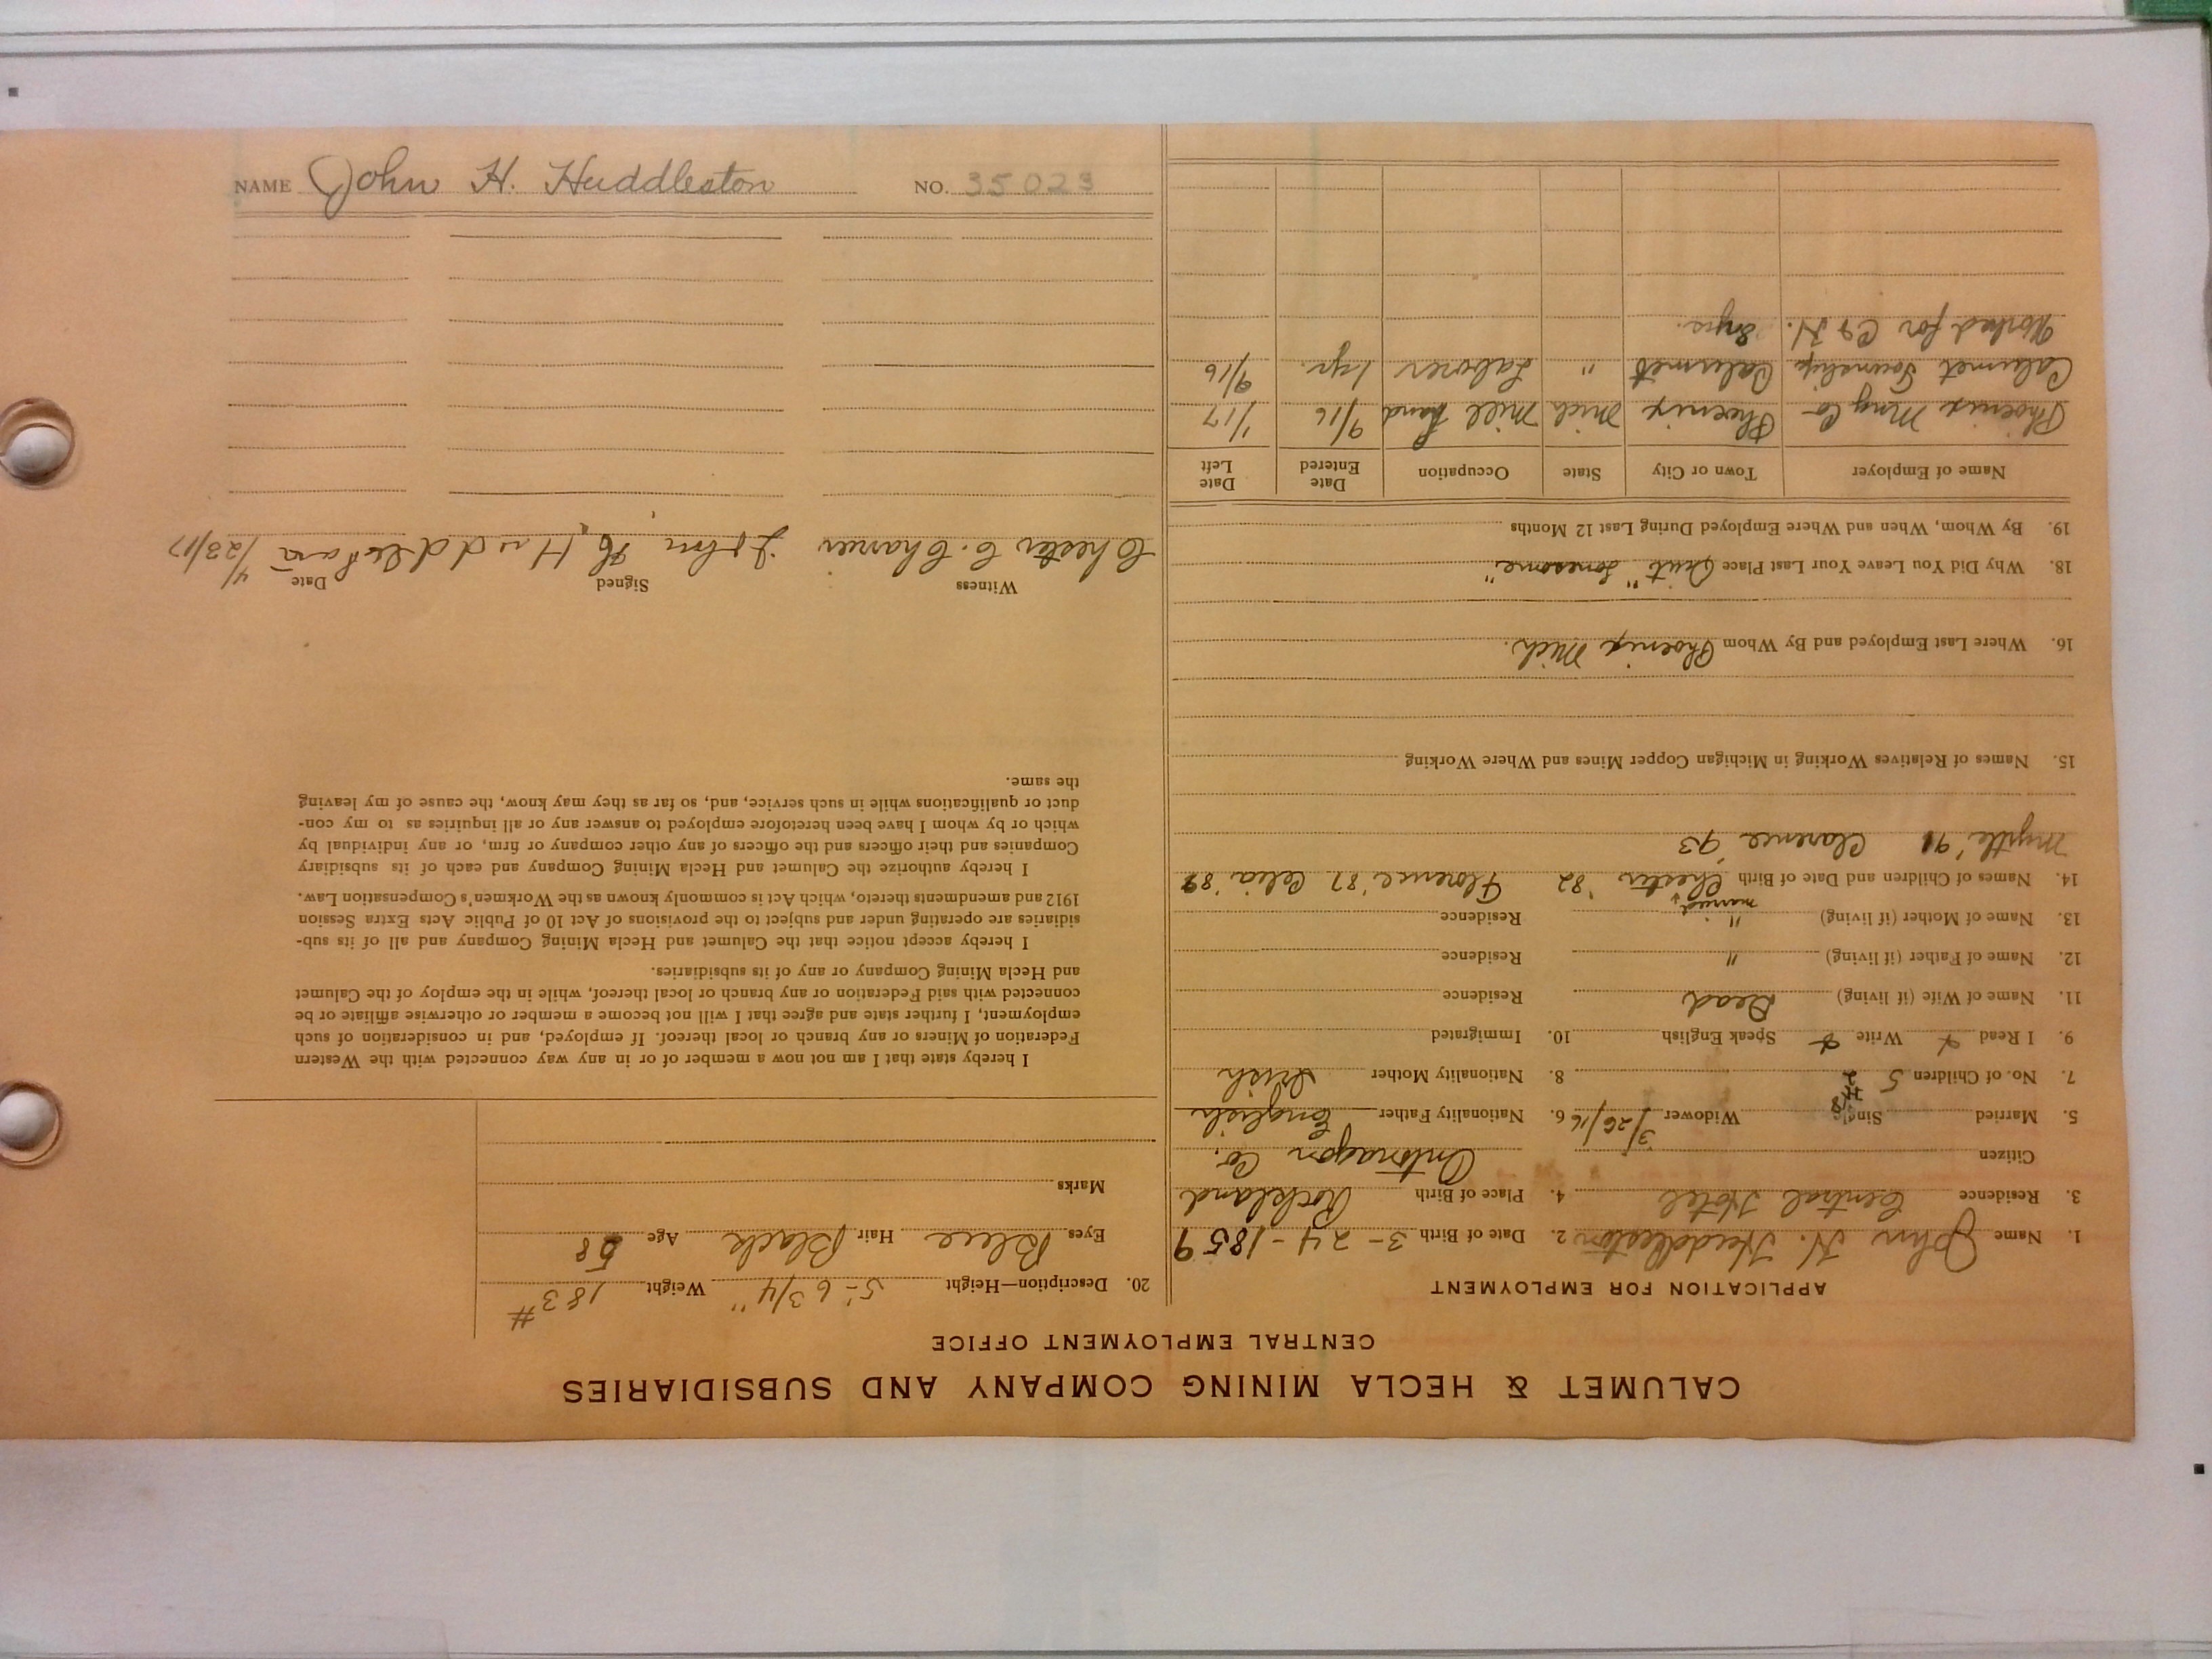 CALUMET & HECLA MINING COMPANY AND SUBSIDIARIES
CENTRAL EMPLOYMENT OFFICE
APPLICATION FOR EMPLOYMENT
1. Name John H. Huddleston 2. Date of Birth 3-24-1859
3. Residence Central Hotel 4. Place of Birth Rockland
Citizen Ontonagon Co.
5. Married Single Widower 3/26/16 6. Nationality Father English
7. No. of Children 5 8. Nationality Mother Irish
9. I Read Write Speak English 10. Immigrated
11. Name of Wife (if living) Dead Residence
12. Name of Father (if living) " Residence
13. Name of Mother (if living) " Residence
married
14. Names of Children and Date of Birth Chester '82 Florence '87 Celia '89
Myrtle '91 Clarence '93
15. Names of Relatives Working in Michigan Copper Mines and Where Working
16. Where Last Employed and By Whom Phoenix Mich.
18. Why Did You Leave Your Last Place Quit "Lonesome"
19. By Whom, When and Where Employed During Last 12 Months
Name of Employer Town or City State Occupation Date Entered Date Left
Phoenix Mng Co Phoenix Mich Mill hand 9/16 1/17
Calumet Township Calumet " Laborer 1 yr. 9/16
Worked for C & H. yrs.
20. Description—Height 5'-6 3/4" Weight 183#
Eyes Blue Hair Black Age 58
Marks
I hereby state that I am not now a member of or in any way connected with the Western
Federation of Miners or any branch or local thereof. If employed, and in consideration of such
employment, I further state and agree that I will not become a member or otherwise affiliate or be
connected with said Federation or any branch or local thereof, while in the employ of the Calumet
and Hecla Mining Company or any of its subsidiaries.
I hereby accept notice that the Calumet and Hecla Mining Company and all of its sub-
sidiaries are operating under and subject to the provisions of Act 10 of Public Acts Extra Session
1912 and amendments thereto, which Act is commonly known as the Workmen's Compensation Law.
I hereby authorize the Calumet and Hecla Mining Company and each of its subsidiary
Companies and their officers and the officers of any other company or firm, or any individual by
which or by whom I have been heretofore employed to answer any or all inquiries as to my con-
duct or qualifications while in such service, and, so far as they may know, the cause of my leaving
the same.
Witness Signed Date
Chester C. John H. Huddleston 4/23/17
NAME John H. Huddleston NO. 35023